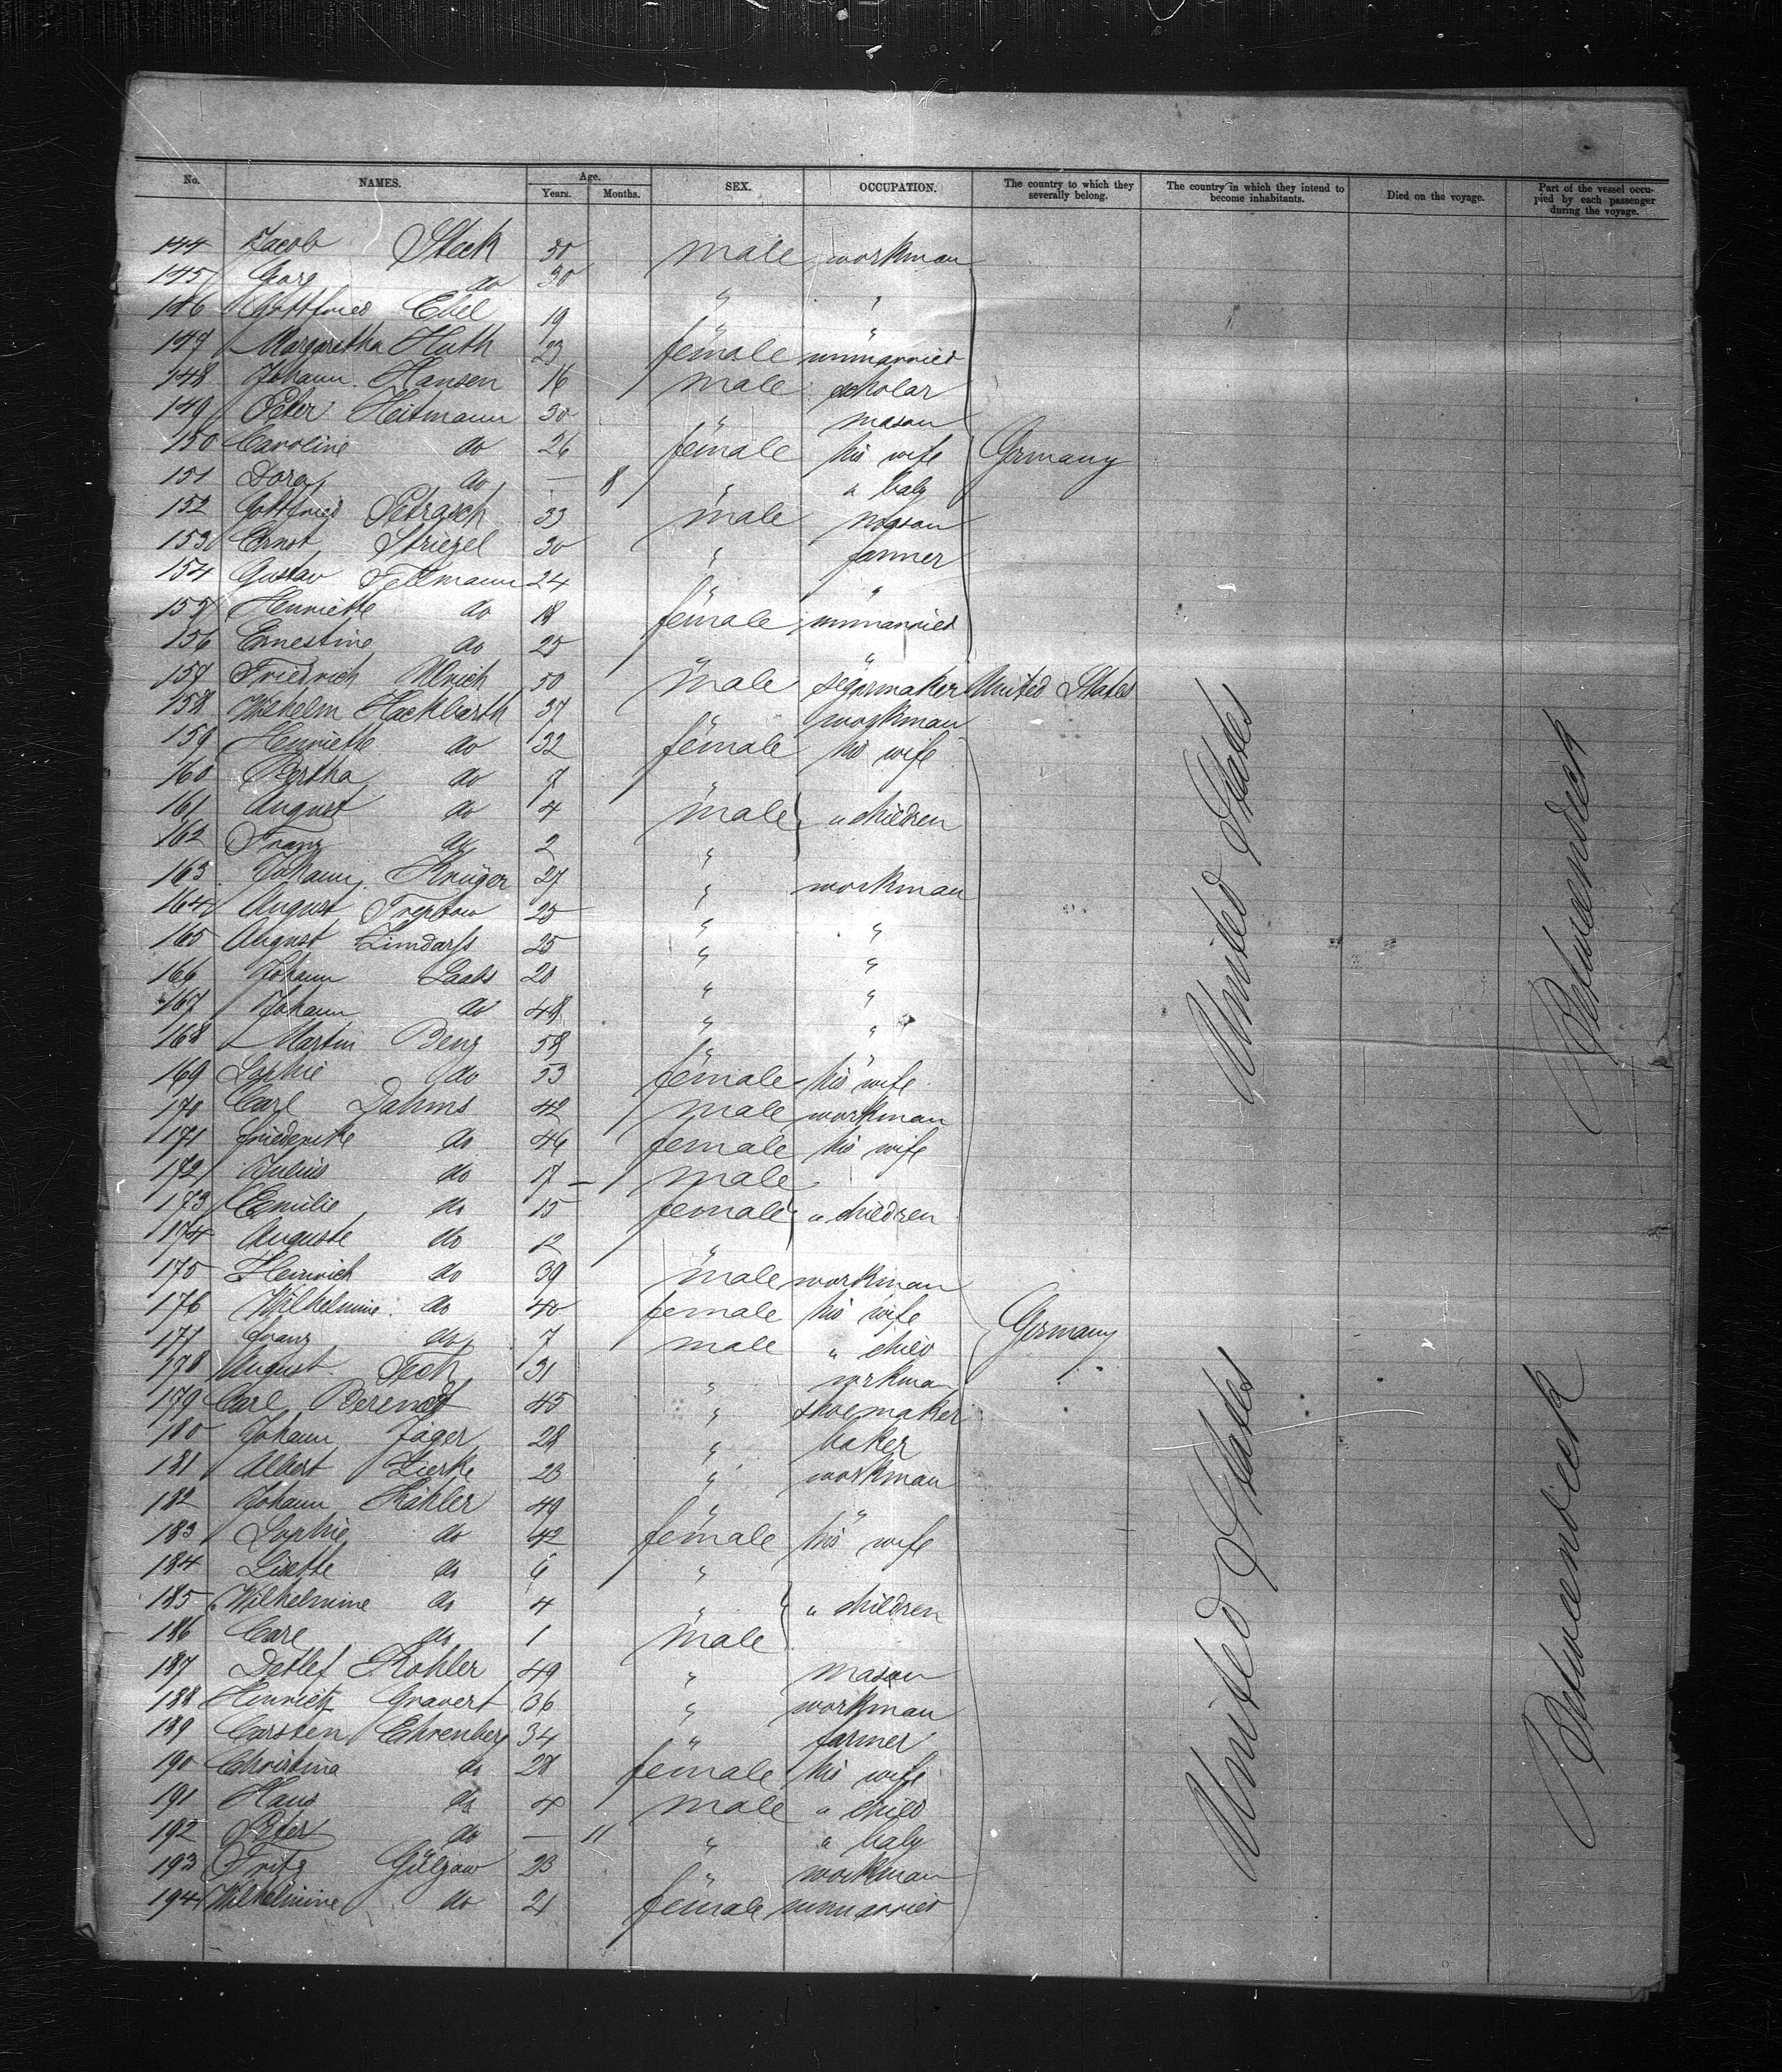 No. NAMES. Age. Years. Months. SEX. OCCUPATION. The country to which they severally belong. The country in which they intend to become inhabitants. Died on the voyage. Part of the vessel occupied by each passenger during the voyage.
144 Jacob Steck 30 male workman
145 Georg do 30 " "
146 Gottfried Ebel 19 " "
147 Margaretha Huth 23 female unmarried
148 Johann Hansen 16 male scholar
149 Peter Heitmann 30 " mason
150 Caroline do 26 female his wife Germany
151 Dora do — 8 " " baby
152 Gottfried Petrasch 33 male mason
153 Ernst Striezel 30 " farmer
154 Gustav Fellmann 24 " "
155 Henriette do 18 female unmarried
156 Ernestine do 25 " "
157 Friedrich Ulrich 50 male segarmaker United States
158 Wilhelm Hackbarth 37 " workman
159 Henriette do 32 female his wife
160 Bertha do 7 "
161 August do 4 male " children
162 Franz do 2 "
163 Johann Krüger 27 " workman
164 August Treptow 25 " "
165 August Zimdars 25 " "
166 Johann Laabs 20 " "
167 Johann do 48 " "
168 Martin Benz 58 " "
169 Sophie do 53 female his wife
170 Carl Dahms 42 male workman
171 Friederike do 46 female his wife
172 Julius do 17 — male
173 Emilie do 15 female " children
174 Auguste do 12 "
175 Heinrich do 39 male workman
176 Wilhelmine do 40 female his wife
177 Franz do 7 male " child Germany
178 August 31 " workman
179 Carl Berendt 45 " shoemaker
180 Johann Jäger 28 " baker
181 Albert Zierke 23 " workman
182 Johann Kähler 49 " "
183 Sophie do 42 female his wife
184 Lisette do "
185 Wilhelmine do 4 " " children
186 Carl do 1 male
187 Detlef Kohler 49 " mason
188 Hinrich Gravert 36 " workman
189 Carsten Ehrenberg 34 " farmer
190 Christina do 28 female his wife
191 Hans do 4 male " child
192 Peter do — 11 " " baby
193 Fritz Gülzow 23 " workman
194 Wilhelmine do 21 female unmarried
United States
Betweendeck
United States
Betweendeck